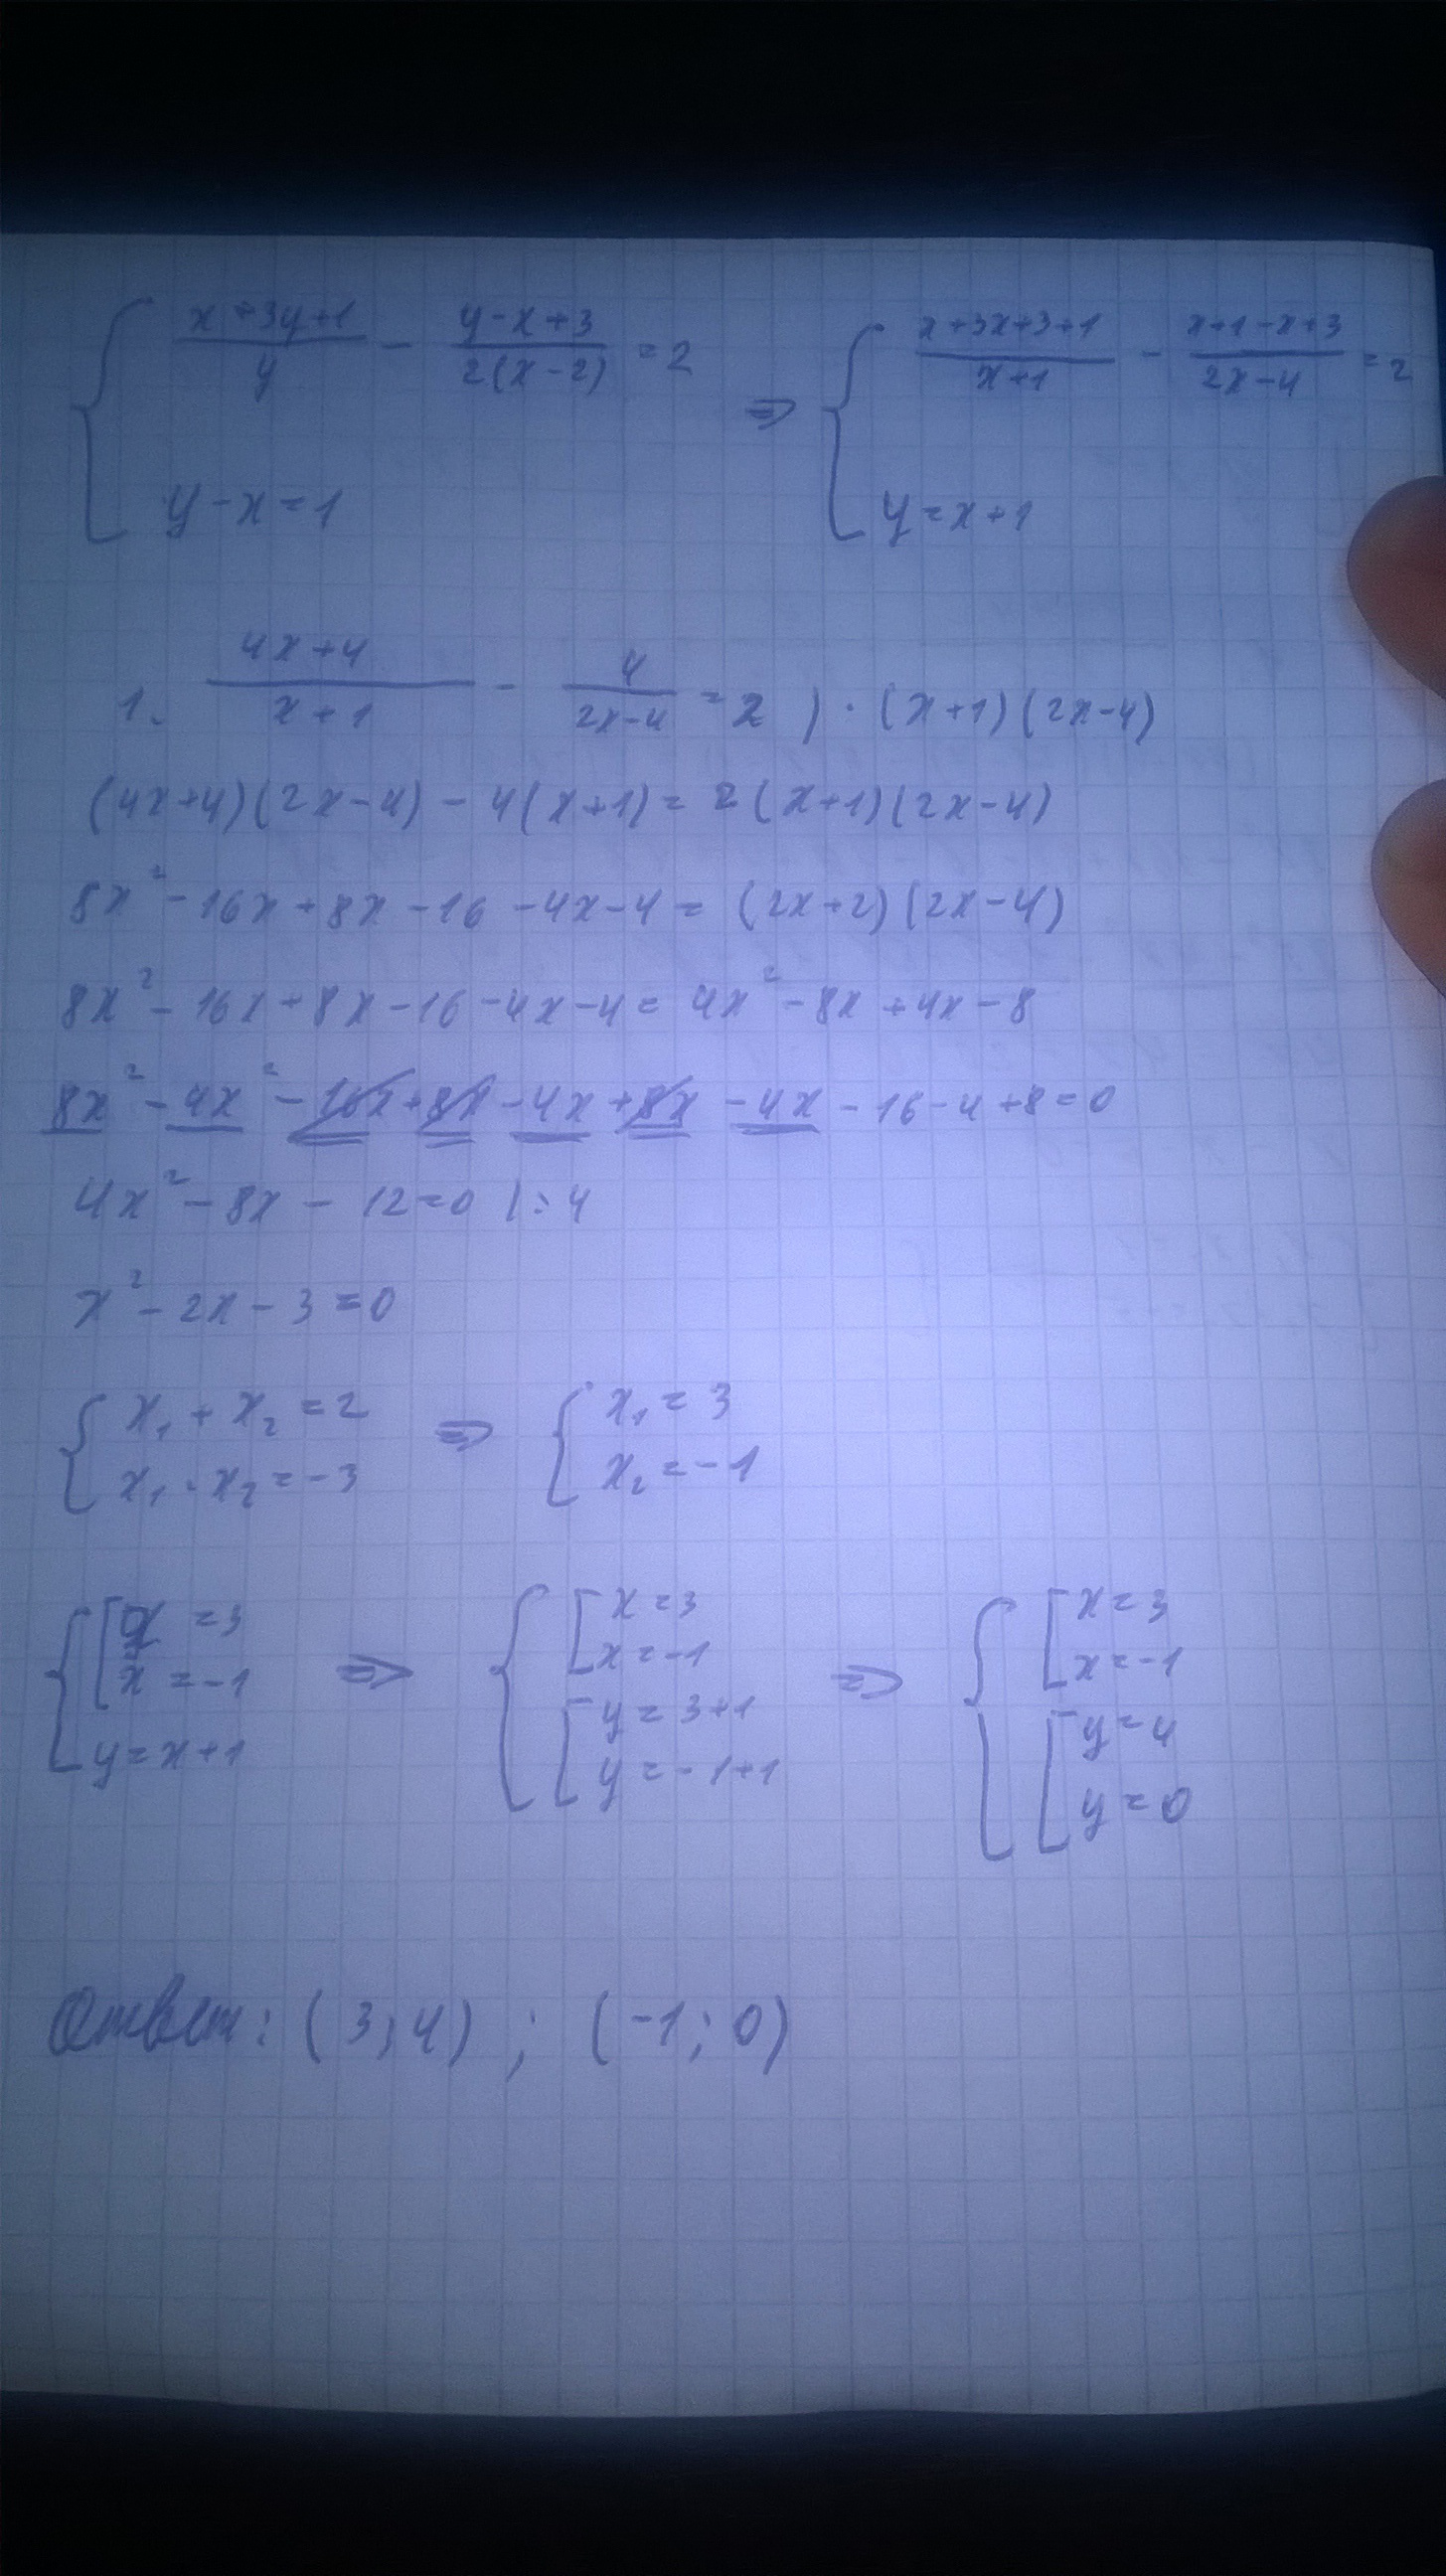 { (x+3y+1)/y - (y-x+3)/(2(x-2)) = 2 => { (x+3x+3+1)/(x+1) - (x+1-x+3)/(2x-4) = 2
y-x=1 y=x+1
1. (4x+4)/(x+1) - 4/(2x-4) = 2 ) · (x+1)(2x-4)
(4x+4)(2x-4) - 4(x+1) = 2(x+1)(2x-4)
8x² - 16x + 8x - 16 - 4x - 4 = (2x+2)(2x-4)
8x² - 16x + 8x - 16 - 4x - 4 = 4x² - 8x + 4x - 8
8x² - 4x² - 16x + 8x - 4x + 8x - 4x - 16 - 4 + 8 = 0
4x² - 8x - 12 = 0 | : 4
x² - 2x - 3 = 0
{ x₁ + x₂ = 2 => { x₁ = 3
x₁ · x₂ = -3 x₂ = -1
{ [ x = 3 => { [ x = 3 => { [ x = 3
x = -1 x = -1 x = -1
y = x+1 [ y = 3+1 [ y = 4
y = -1+1 y = 0
Ответ: (3; 4) ; (-1; 0)